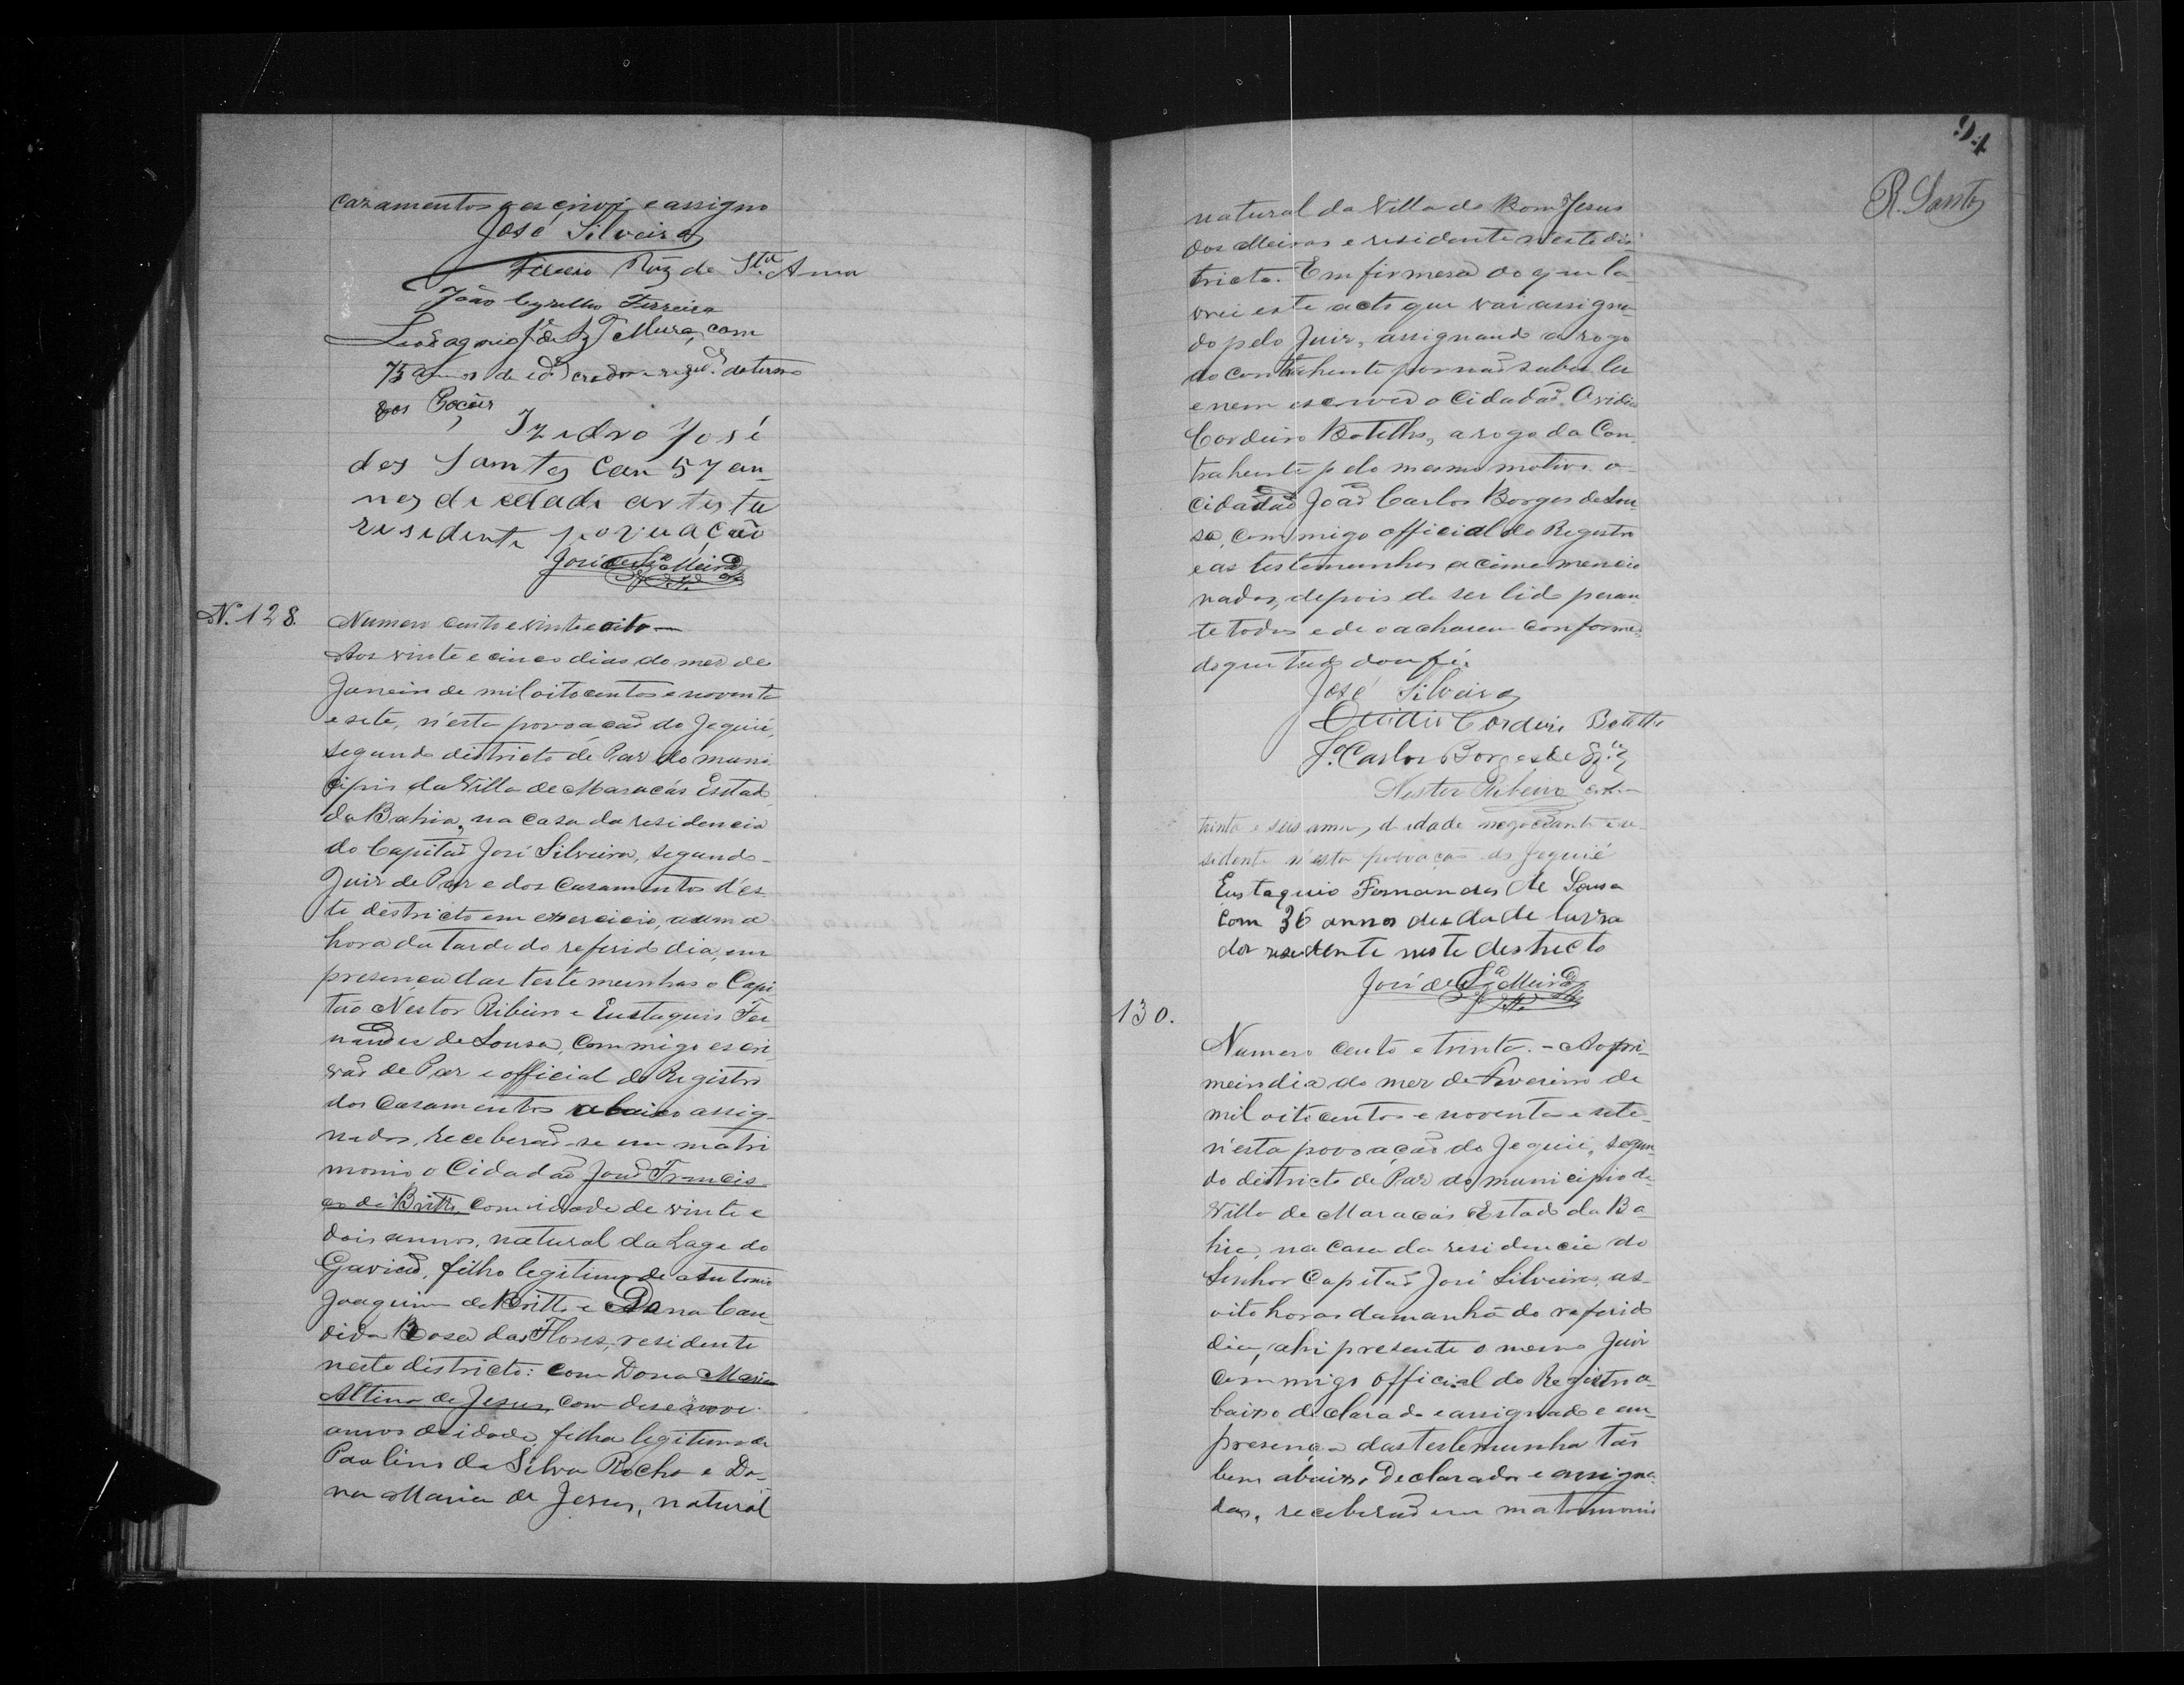 cazamentos o escrivi e assigno
José Silveira
Ruz de Sta. Anna
João Cyrillo Ferreira
com
75 annos de ed.e creador resid.e do termo
dos Poções
Izidro José
dos Santos Can 57 an-
nos de edade artista
residente povuação
José de Sza. Meira
N. 128. Numero cento e vinte e oito—
Aos vinte e cinco dias do mez de
Janeiro de mil oito centos e noventa
e sete, n'esta povoação do Jequié,
segundo districto de Paz do muni
cipio da Villa de Maracás Estado
da Bahia, na casa da residencia
do Capitão José Silveira, segundo-
Juiz de Paz e dos Casamentos d'es-
te districto em exercicio, a uma
hora da tarde do referido dia, em
presença das testemunhas o Capi
tão Nestor Ribeiro e Eustaquio Fer
nandes de Sousa, commigo escri
vão de Paz e official do Registro
dos Casamentos abaixo assig-
nados, receberão-se em matri
monio o Cidadão João Francis-
co de Britto, com idade de vinte e
dois annos, natural da Lage do
Gavião, filho legitimo de Antonio
Joaquim de Britto e Dona Can
dida Rosa das Flores, residente
neste districto: com Dona Maria
Altina de Jesus, com desenove
annos de idade, filha legitima de
Paulino da Silva Rocha e Do-
na Maria de Jesus, natural
94
R. Santos
natural da Villa do Bom Jesus
dos Meiras e residente n'este dis
tricto. Em firmesa do que la-
vrei este acto que vai assigna-
do pelo Juiz, assignando a rogo
do contrahente por não saber ler
e nem escrever o Cidadão Ovidio
Cordeiro Botelho, a rogo da Con-
trahente pelo mesmo motivo o
cidadão João Carlos Borges de Sou-
sa, commigo official do Registro
e as testemunhas acima mencio
nadas, depois de ser lido peran-
te todos e de o acharem conforme
do que tudo dou fé.
José Silveira
Ovidio Cordeiro Botelho
J.º Carlos Borges de Sz.a
Nestor Ribeiro com
trinta e seis annos de idade negociante e re-
sidente n'esta povoação do Jequié
Eustaquio Fernandes de Sousa
Com 36 annos de edade lavra
dor residente neste destricto
José de Sza. Meira
130.
Numero cento e trinta. - Ao pri-
meiro dia do mez de Fevereiro de
mil oitocentos e noventa e sete
n'esta povoação do Jequié, segun
do districto de Paz do municipio da
Villa de Maracás Estado da Ba-
hia, na casa da residencia do
Senhor Capitão José Silveira, as
oito horas da manhã do referido
dia, ahi presente o mesmo Juiz
commigo official do Registro a-
baixo declarado e assignado e em
presença das testemunha tão
bem abaixo Declarados e assigna
das, receberão em matrimonio